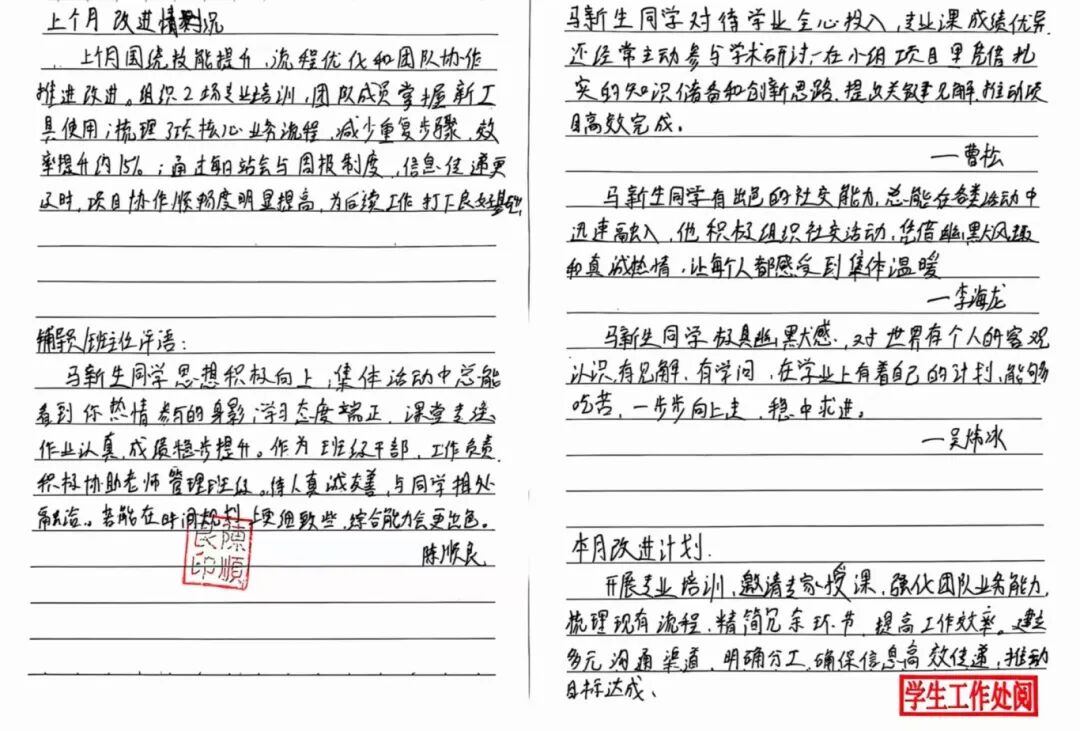 上个月改进情况
上个月围绕技能提升,流程优化和团队协作
推进改进。组织2场专业培训,团队成员掌握新工
具使用;梳理3项核心业务流程,减少重复步骤,效
率提升约15%;通过每日站会与周报制度,信息传递更
及时,项目协作顺畅度明显提高,为后续工作打下良好基础
辅导员/班主任评语:
马新生同学思想积极向上,集体活动中总能
看到你热情参与的身影;学习态度端正,课堂专注
作业认真,成绩稳步提升。作为班级干部,工作负责
积极协助老师管理班级。待人真诚友善,与同学相处
融洽。若能在时间规划上更细致些,综合能力会更出色。
陈顺良
陳順良印
马新生同学对待学业全心投入,专业课成绩优异
还经常主动参与学术研讨,在小组项目里凭借扎
实的知识储备和创新思路,提出关键见解,推动项
目高效完成。
—曹松
马新生同学有出色的社交能力,总能在各类活动中
迅速融入,他积极组织社交活动,凭借幽默风趣
和真诚热情,让每个人都感受到集体温暖
—李海龙
马新生同学极具幽默感,对世界有个人的客观
认识,有见解,有学问,在学业上有着自己的计划,能够
吃苦,一步步向上走,稳中求进。
—吴炜冰
本月改进计划.
开展专业培训,邀请专家授课,强化团队业务能力,
梳理现有流程,精简冗余环节,提高工作效率。建立
多元沟通渠道,明确分工,确保信息高效传递,推动
目标达成、
学生工作处阅